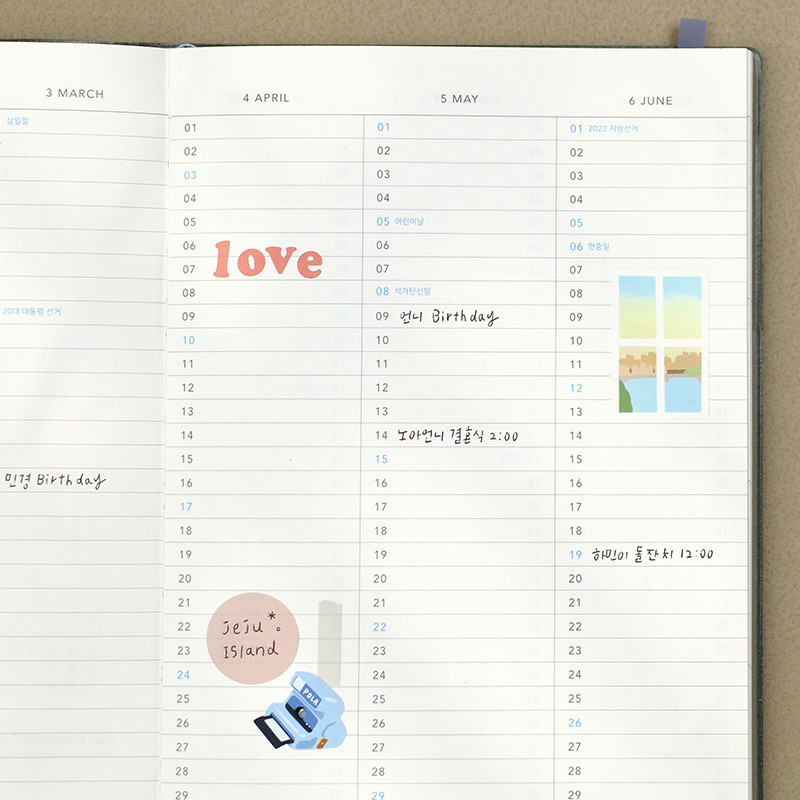 3 MARCH
삼일절
20대 대통령 선거
민경 Birthday
4 APRIL
01
02
03
04
05
06
07
love
08
09
10
11
12
13
14
15
16
17
18
19
20
21
22
23
jeju *。
ISland
24
25
POLA
26
27
28
29
5 MAY
01
02
03
04
05 어린이날
06
07
08 석가탄신일
09 언니 Birthday
10
11
12
13
14 노아언니 결혼식 2:00
15
16
17
18
19
20
21
22
23
24
25
26
27
28
29
6 JUNE
01 2022 지방선거
02
03
04
05
06 현충일
07
08
09
10
11
12
13
14
15
16
17
18
19 하민이 돌잔치 12:00
20
21
22
23
24
25
26
27
28
29